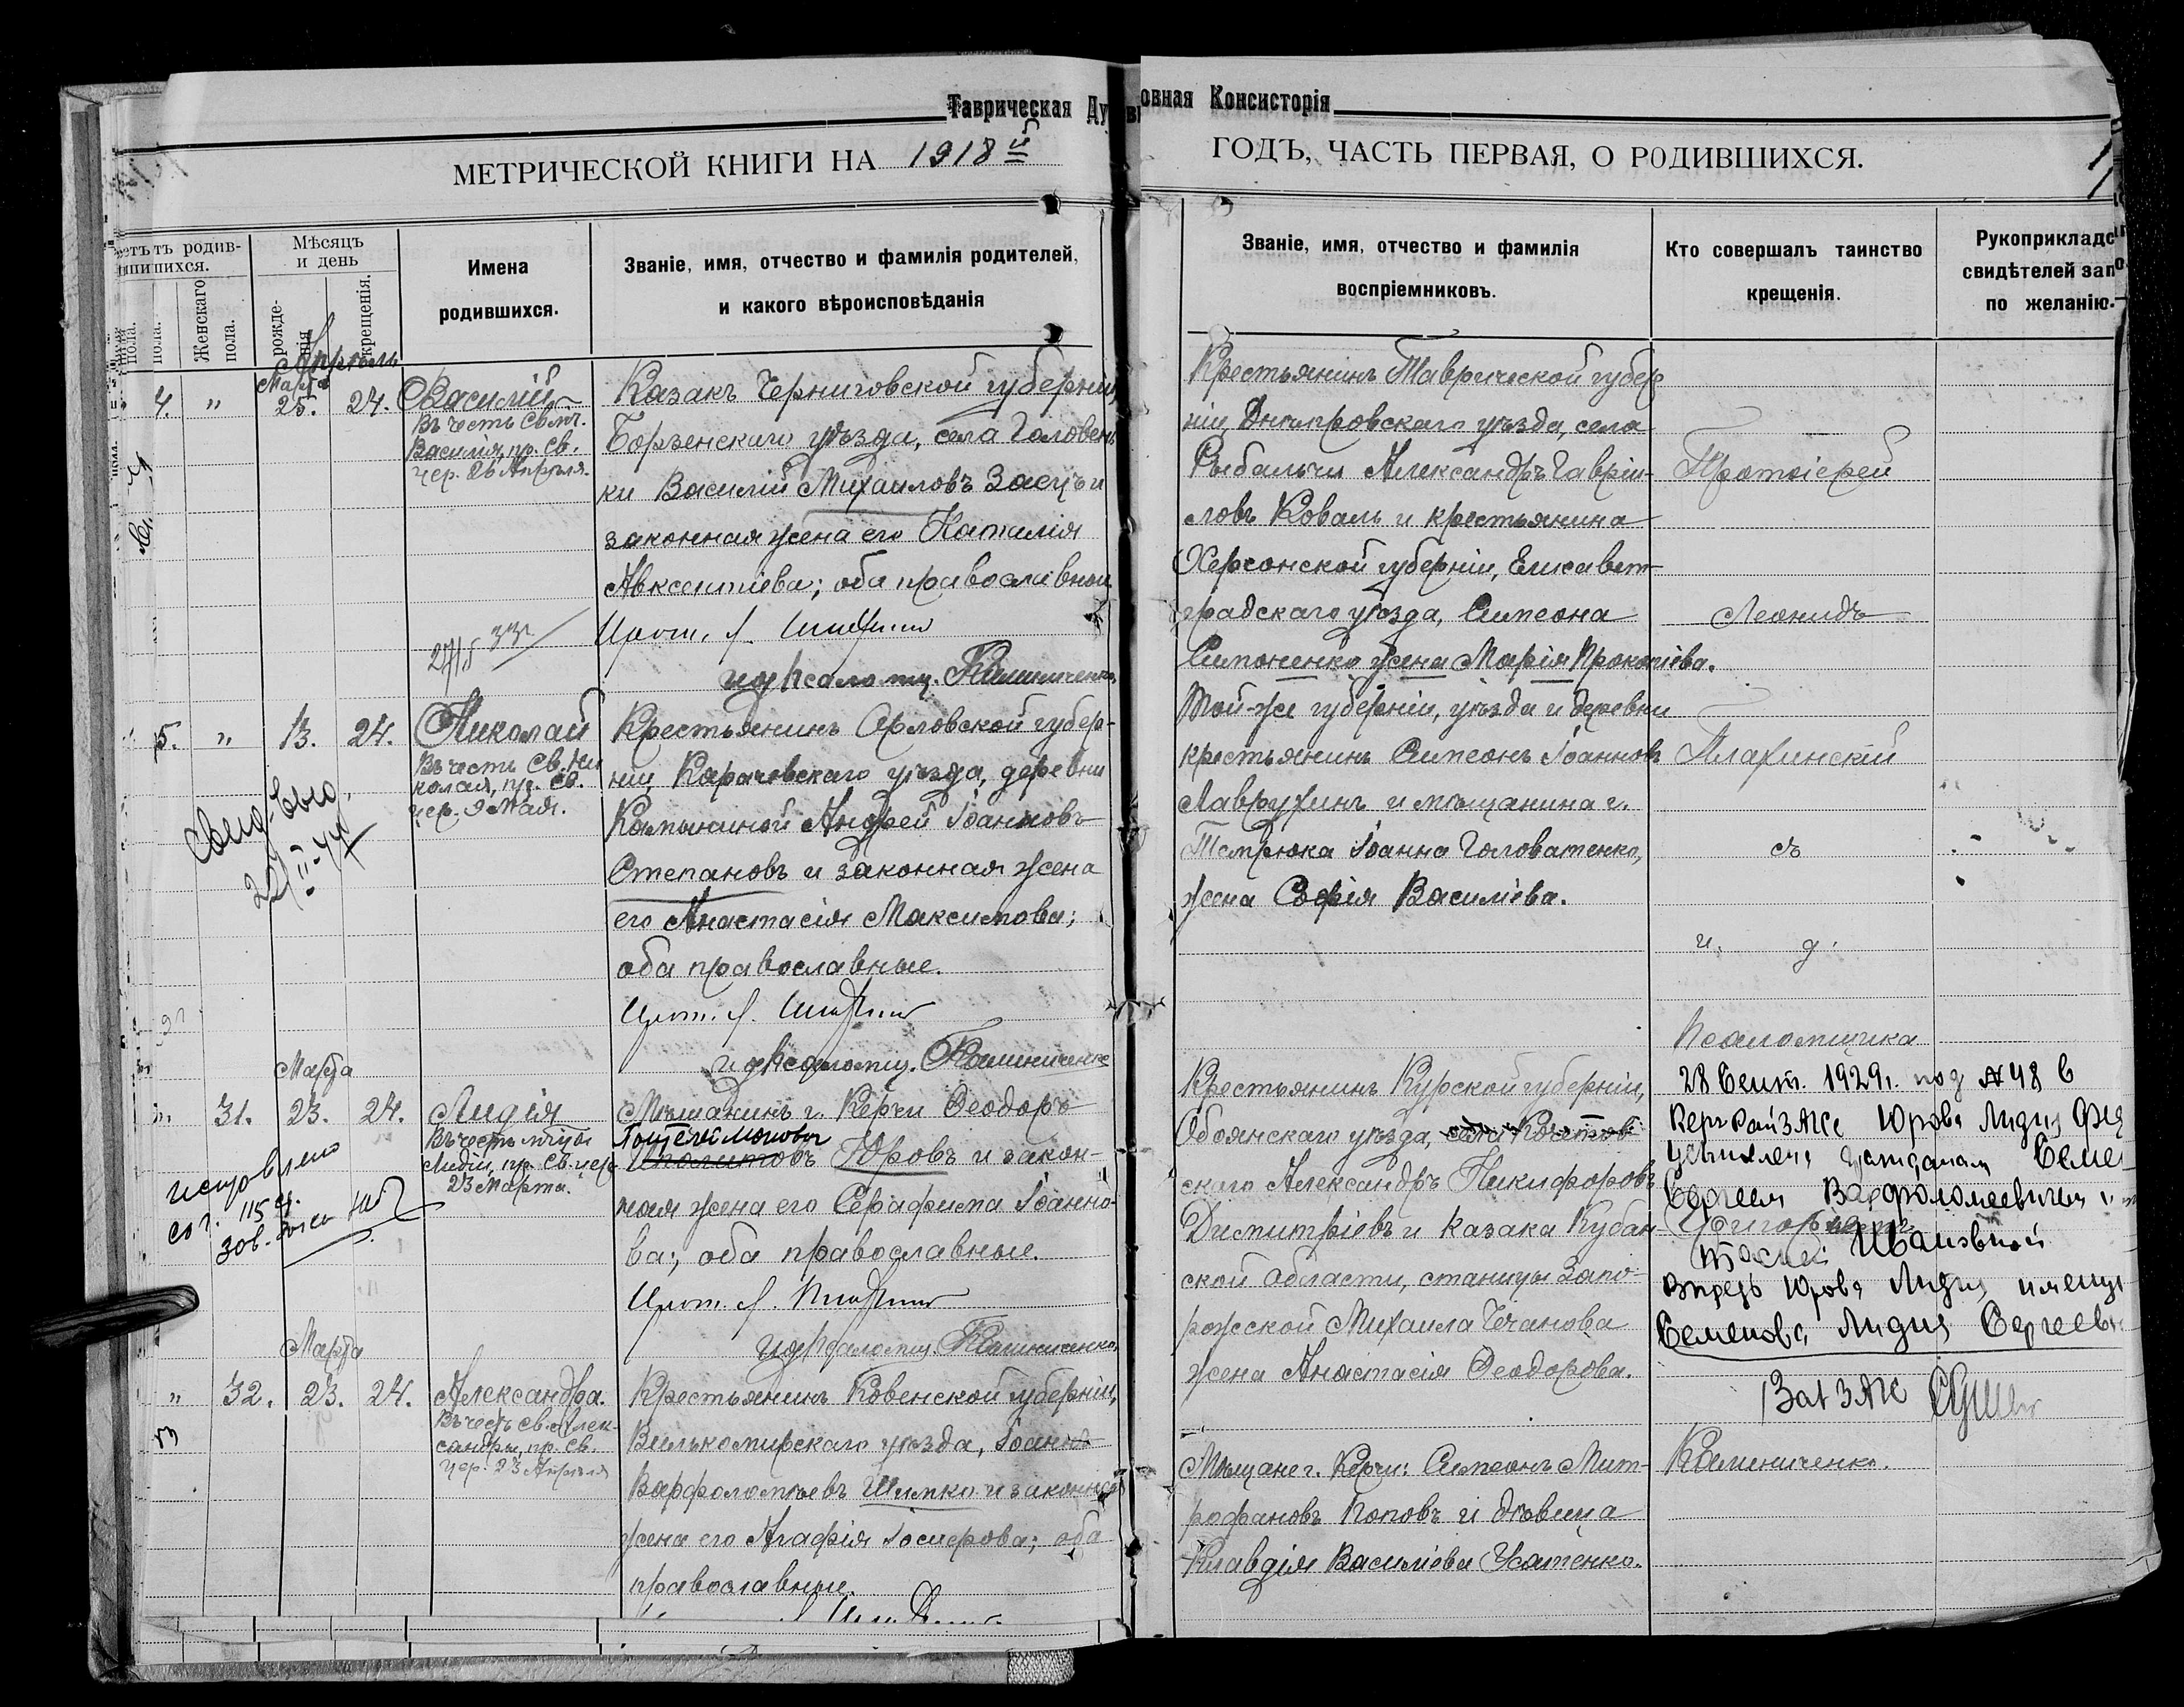 Таврическая Духовная Консисторія
МЕТРИЧЕСКОЙ КНИГИ НА 1918й
ГОДЪ, ЧАСТЬ ПЕРВАЯ, О РОДИВШИХСЯ.
родившихся.
пола.
Женскаго пола.
Мѣсяцъ и день
рожденія
крещенія.
Имена
родившихся.
Званіе, имя, отчество и фамилія родителей,
и какого вѣроисповѣданія
Званіе, имя, отчество и фамилія
воспріемниковъ.
Кто совершалъ таинство
крещенія.
Рукоприкладс
свидѣтелей зап
по желанію.
Апрѣль
Марта
4. " 25. 24. Василій
Въ честь Св. мч.
Василія, пр. Св.
цер. 26 Апрѣля.
Казакъ Черниговской губерніи,
Борзенскаго уѣзда, села Головень
ки Василій Михаиловъ Заецъ и
законная жена его Наталія
Авксентіева; оба православные
Прот. Л.
и д псаломщ. Калиниченко
Крестьянинъ Таврической губер
ніи, Днѣпровскаго уѣзда, села
Рыбальчи Александръ Гавріи-
ловъ Коваль и крестьянина
Херсонской губерніи, Елисавет-
градскаго уѣзда, Симеона
Симоненко жена Марія Прокопіева.
5. " 13. 24. Николай
Въ честь Св. Ни
колая, пр. Св.
цер. 9 Мая.
Крестьянинъ Орловской губер-
ніи, Карачевскаго уѣзда, деревни
Андрей Іоанновъ
Степановъ и законная жена
его Анастасія Максимова;
оба православные.
Прот. Л.
и д псаломщ. Калиниченко
Той-же губерніи, уѣзда и деревни
крестьянинъ Симеонъ Іоанновъ
Лаврухинъ и мѣщанина г.
Темрюка Іоанна Головатенко,
жена Софія Василіева.
Протоіерей
Леонидъ
съ
и. д.
Псаломщика
Марта
" 31. 23. 24. Лидія
Въ честь мч-цы
Лидіи, пр. Св. цер.
23 Марта.
Мѣщанинъ г. Керчи Ѳеодоръ
Пантелеймонович
Иполитовъ Юровъ и закон-
ная жена его Серафима Іоанно-
ва; оба православные.
Прот. Л.
и д псаломщ. Калиниченко
Крестьянинъ Курской губерніи,
Обоянскаго уѣзда,
скаго Александръ Никифоровъ
Димитріевъ и казака Кубан-
ской области, станицы Запо-
рожской Михаила Чечанова
жена Анастасія Ѳеодорова.
28 Сент. 1929г. под №48 в
Керч Рай ЗАГСе Юрова Лидия
Сергеем Варфоломеевичем
Ивановной
Впредь Юрова Лидия
Семенова Лидия Сергеев
Зав ЗАГС
исправлено
Марта
" 32. 23. 24. Александра.
Въ честь Св. Алек-
сандры, пр. Св.
цер. 23 Апрѣля
Крестьянинъ Ковенской губерніи,
Вилькомирскаго уѣзда, Іоаннъ
Варфоломѣевъ Шимко и законная
жена его Агафія Іосифова; оба
православные.
Мѣщане г. Керчи: Симеонъ Мит-
рофановъ Поповъ и дѣвица
Клавдія Василіева Усатенко.
Калиниченко.